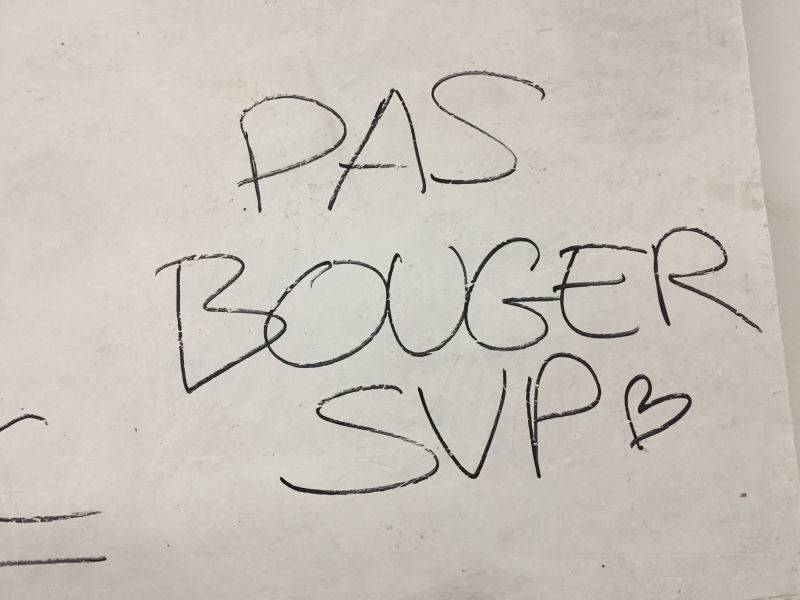 PAS
BOUGER
SVP ♡